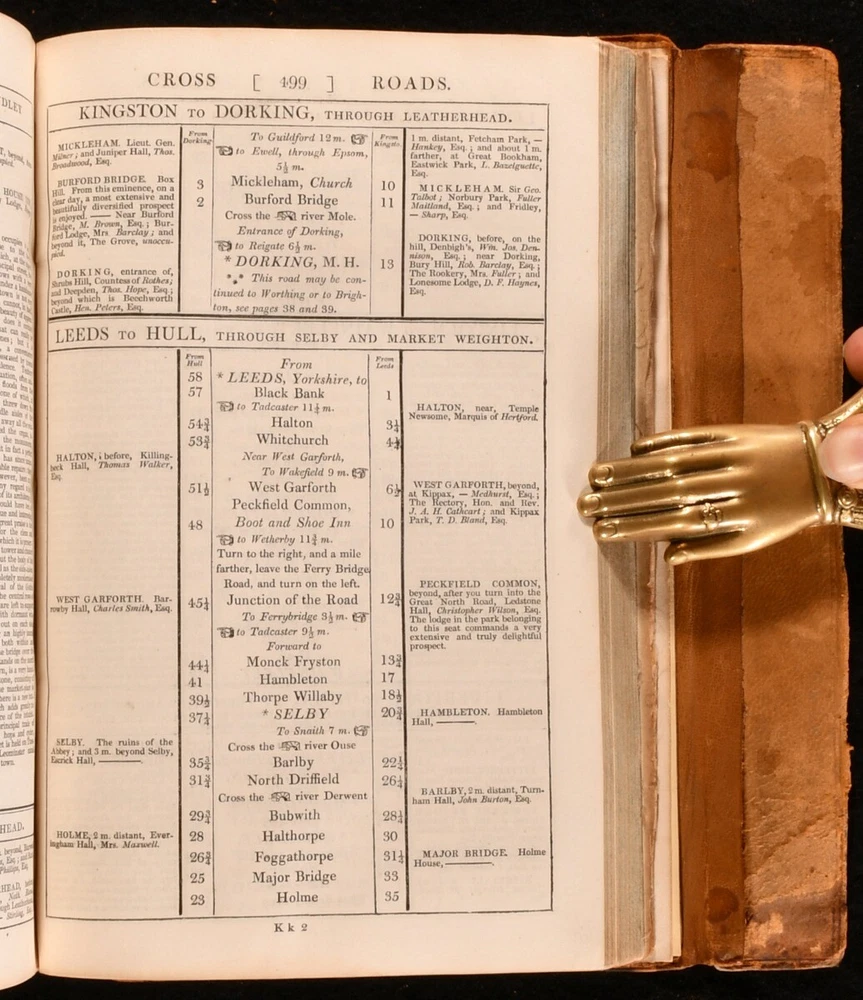 CROSS [ 499 ] ROADS.
KINGSTON TO DORKING, THROUGH LEATHERHEAD.
MICKLEHAM. Lieut. Gen.
Milner; and Juniper Hall, Thos.
Broadwood, Esq.
BURFORD BRIDGE. Box
Hill. From this eminence, on a
clear day, a most extensive and
beautifully diversified prospect
is enjoyed. —— Near Burford
Bridge, M. Brown, Esq.; Bur-
ford Lodge, Mrs Barclay; and
beyond it, The Grove, unoccu-
pied.
DORKING, entrance of,
Shrubs Hill, Countess of Rothes;
and Deepden, Thos. Hope, Esq.;
beyond which is Beechworth
Castle, Hen. Peters, Esq.
From
Dorking
3
2
To Guildford 12 m.
to Ewell, through Epsom,
5½ m.
Mickleham, Church
Burford Bridge
Cross the river Mole.
Entrance of Dorking,
to Reigate 6½ m.
* DORKING, M. H.
*⁎* This road may be con-
tinued to Worthing or to Brigh-
ton, see pages 38 and 39.
From
Kingstn.
10
11
13
1 m. distant, Fetcham Park, —
Hankey, Esq.; and about 1 m.
farther, at Great Bookham,
Eastwick Park, L. Bazelguette,
Esq.
MICKLEHAM. Sir Geo.
Talbot; Norbury Park, Fuller
Maitland, Esq.; and Fridley,
— Sharp, Esq.
DORKING, before, on the
hill, Denbigh's, Wm. Jos. Den-
nison, Esq.; near Dorking,
Bury Hill, Rob. Barclay, Esq.;
The Rookery, Mrs. Fuller; and
Lonesome Lodge, D. F. Haynes,
Esq.
LEEDS TO HULL, THROUGH SELBY AND MARKET WEIGHTON.
From
Hull
From
From
Leeds
58 * LEEDS, Yorkshire, to
57 Black Bank 1
to Tadcaster 11¼ m.
HALTON, near, Temple
Newsome, Marquis of Hertford.
54¾ Halton 3¼
53¾ Whitchurch 4¼
HALTON, before, Killing-
beck Hall, Thomas Walker,
Esq.
Near West Garforth,
To Wakefield 9 m.
51½ West Garforth 6½
Peckfield Common,
48 Boot and Shoe Inn 10
WEST GARFORTH, beyond,
at Kippax, — Medhurst, Esq.;
The Rectory, Hon. and Rev.
J. A. H. Cathcart; and Kippax
Park, T. D. Bland, Esq.
to Wetherby 11¾ m.
Turn to the right, and a mile
farther, leave the Ferry Bridge
Road, and turn on the left.
WEST GARFORTH. Bar-
rowby Hall, Charles Smith, Esq.
45¼ Junction of the Road 12¾
To Ferrybridge 3½ m.
to Tadcaster 9½ m.
Forward to
PECKFIELD COMMON,
beyond, after you turn into the
Great North Road, Ledstone
Hall, Christopher Wilson, Esq.
The lodge in the park belonging
to this seat commands a very
extensive and truly delightful
prospect.
44¼ Monck Fryston 13¾
41 Hambleton 17
39½ Thorpe Willaby 18½
37¼ * SELBY 20¾
HAMBLETON. Hambleton
Hall, ———.
To Snaith 7 m.
Cross the river Ouse
SELBY. The ruins of the
Abbey; and 3 m. beyond Selby,
Escrick Hall, ———.
35¾ Barlby 22¼
31¾ North Driffield 26¼
Cross the river Derwent
BARLBY, 2 m. distant, Turn-
ham Hall, John Burton, Esq.
29¾ Bubwith 28¼
HOLME, 2 m. distant, Ever-
ingham Hall, Mrs. Maxwell.
28 Halthorpe 30
26¾ Foggathorpe 31¼
MAJOR BRIDGE. Holme
House, ———.
25 Major Bridge 33
23 Holme 35
K k 2